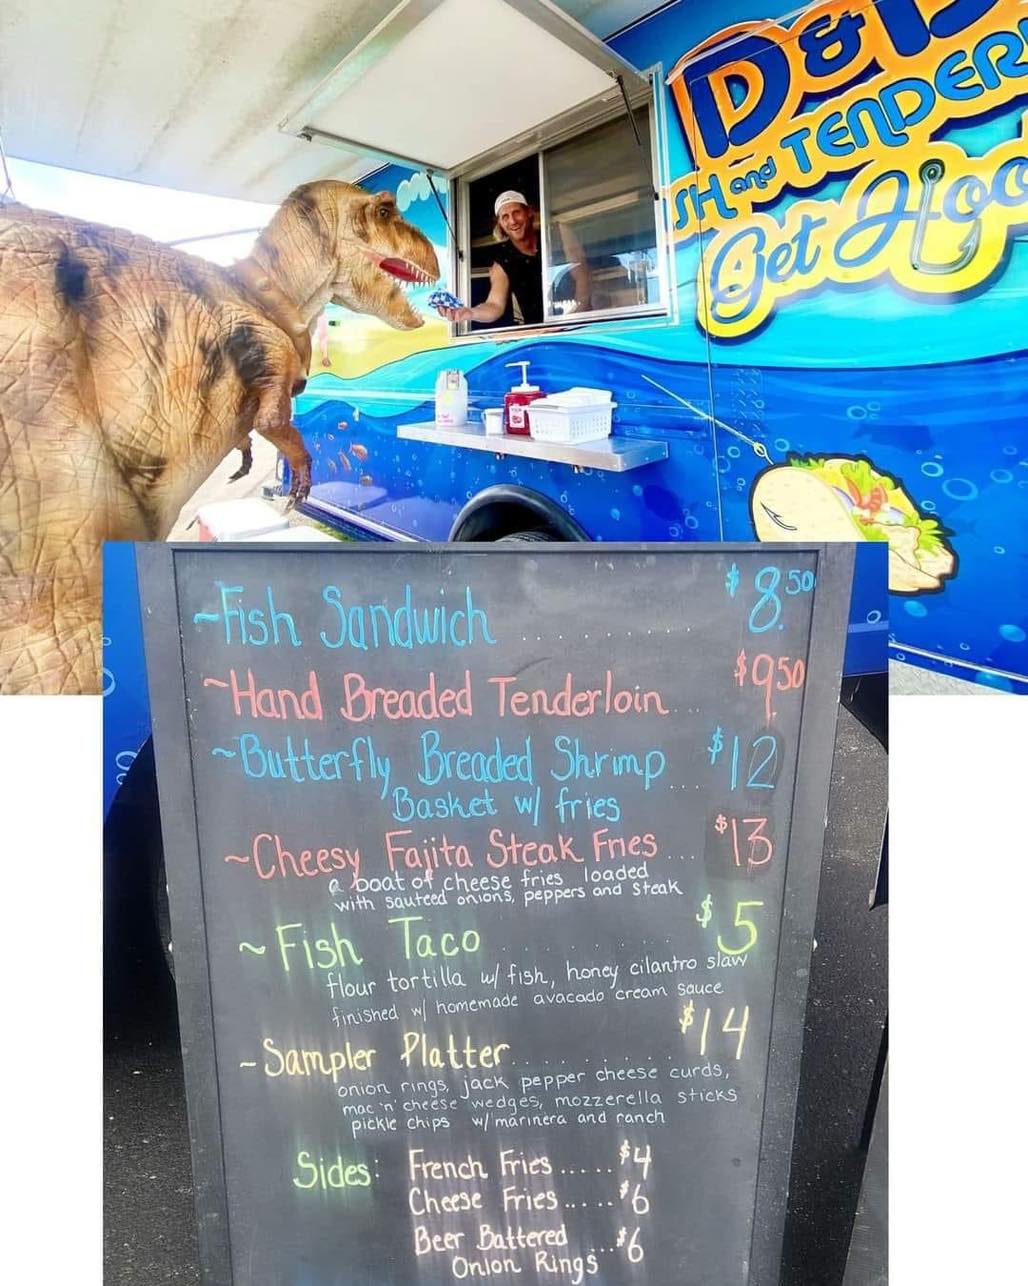 D&B
SH and TENDER
Get Hoo
~Fish Sandwich .......... $8.50
~Hand Breaded Tenderloin... $9.50
~Butterfly Breaded Shrimp ... $12
Basket w/ fries
~Cheesy Fajita Steak Fries ... $13
a boat of cheese fries loaded
with sauteed onions, peppers and steak
~Fish Taco .......... $5
flour tortilla w/ fish, honey cilantro slaw
finished w/ homemade avacado cream sauce
~Sampler Platter .......... $14
onion rings, jack pepper cheese curds,
mac 'n' cheese wedges, mozzerella sticks
pickle chips w/ marinera and ranch
Sides: French Fries..... $4
Cheese Fries..... $6
Beer Battered ... $6
Onion Rings